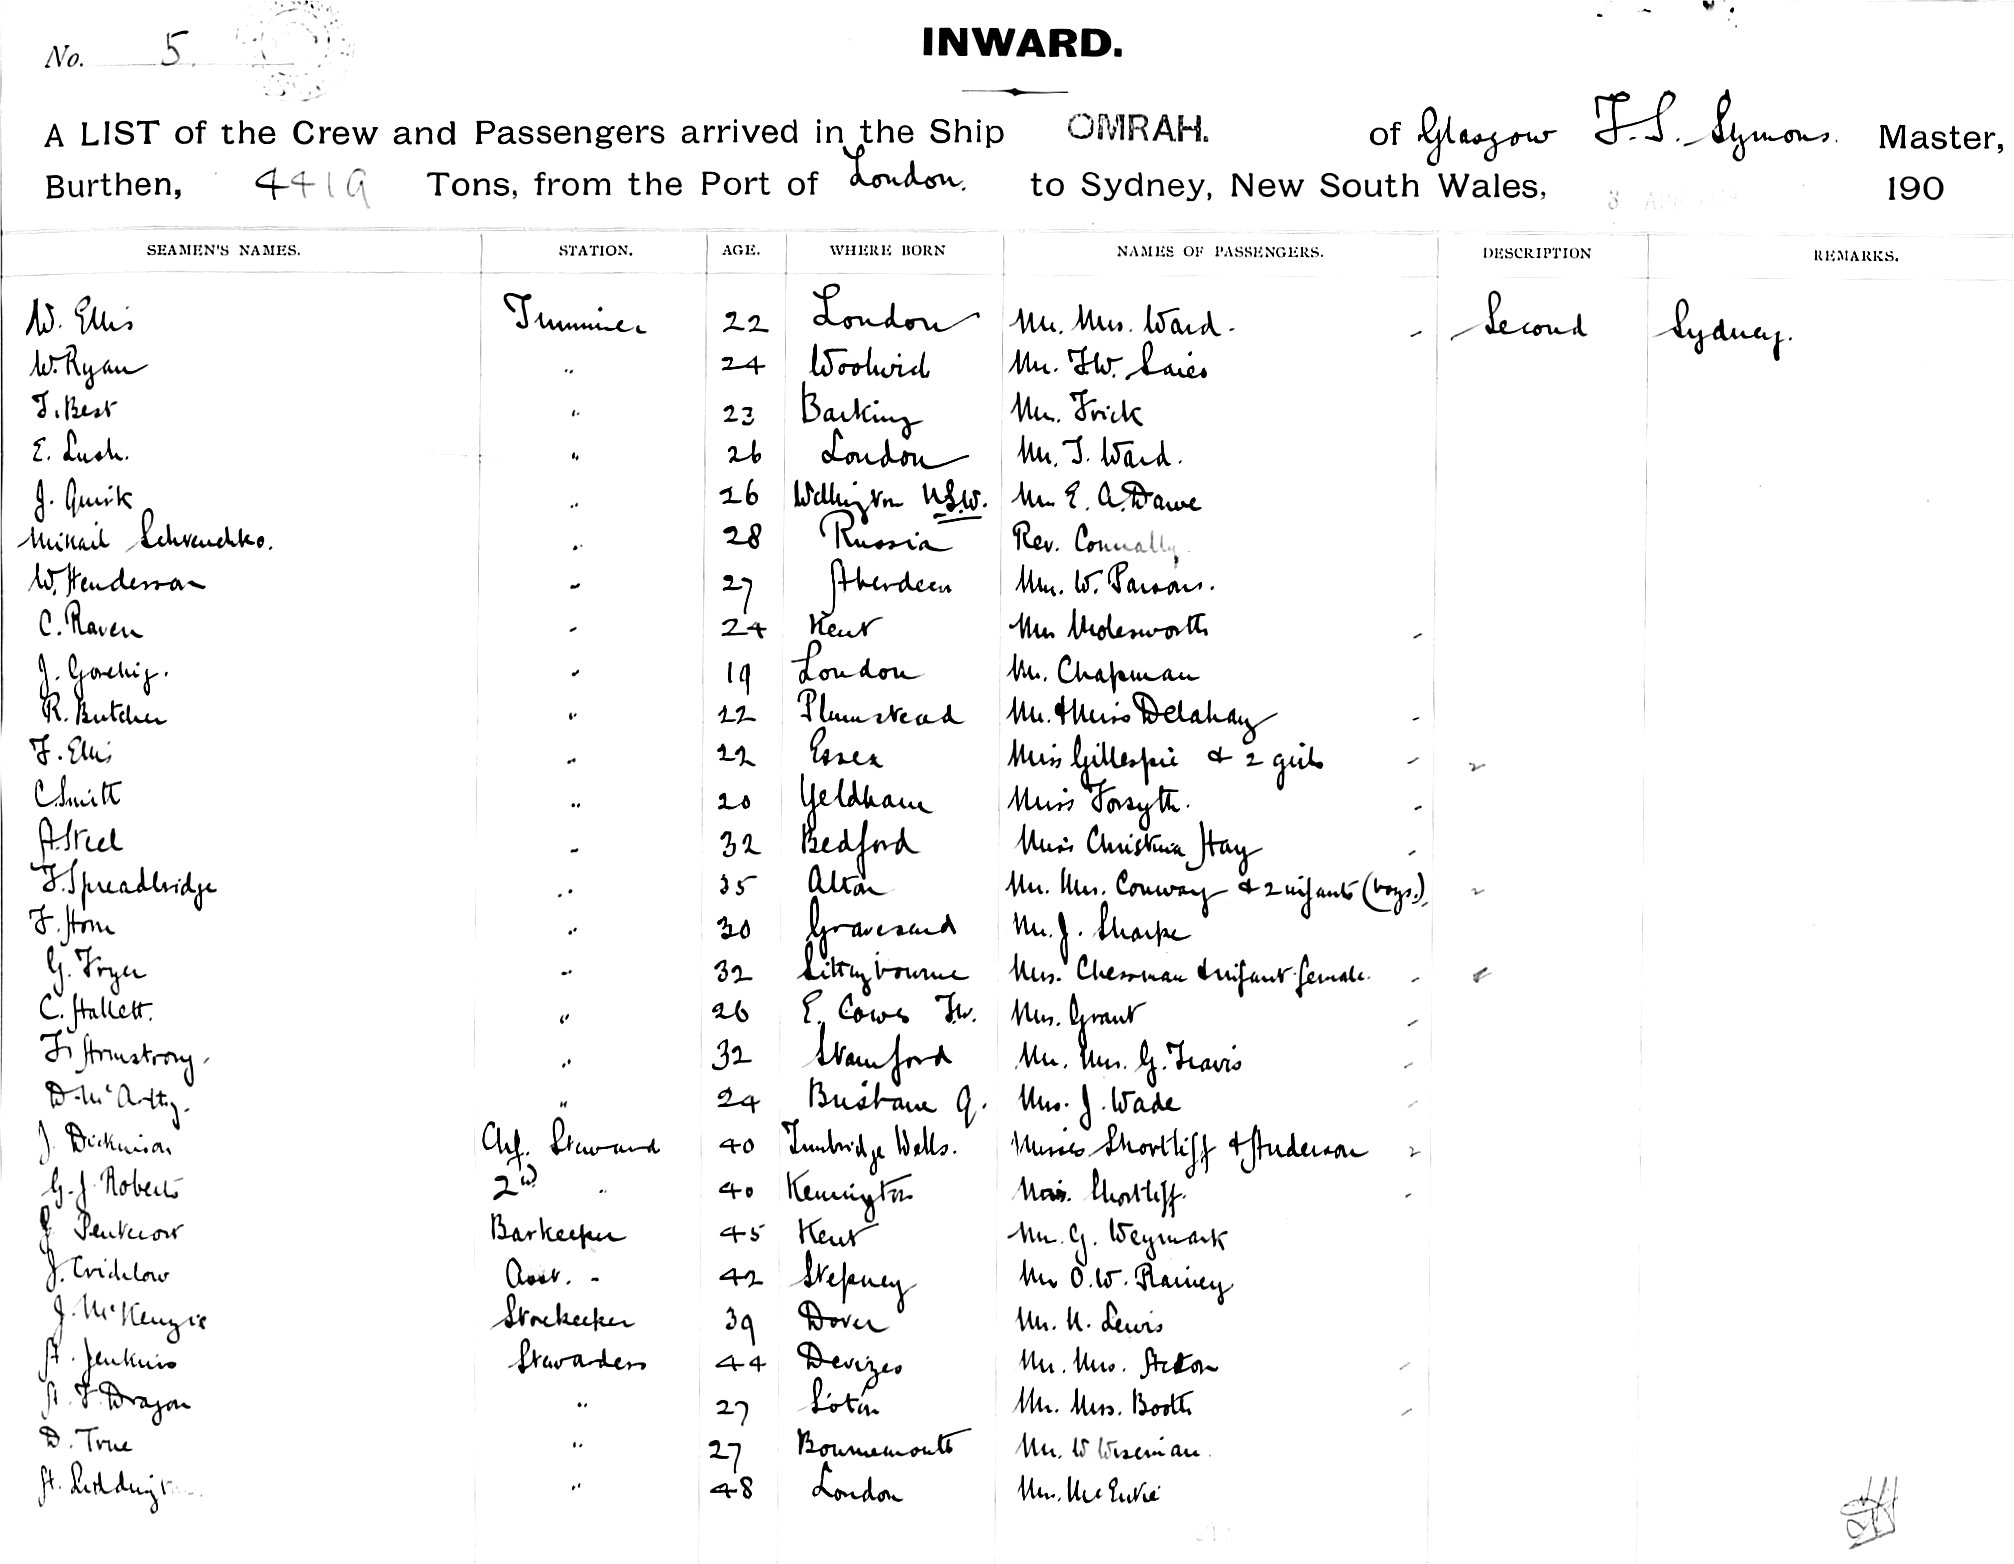 No. 5.
INWARD.
A LIST of the Crew and Passengers arrived in the Ship OMRAH. of Glasgow F. S. Symons. Master,
Burthen, 4419 Tons, from the Port of London. to Sydney, New South Wales, 190
SEAMEN'S NAMES. STATION. AGE. WHERE BORN NAMES OF PASSENGERS. DESCRIPTION REMARKS.
W. Ellis Trimmer 22 London Mr. Mrs. Ward. - Second Sydney.
W. Ryan " 24 Woolwich Mr. F.W. Saies
F. Best " 23 Barking Mr. Frick
E. Lush. " 26 London Mr. T. Ward.
J. Quirk " 26 Wellington N.S.W. Mr E. A. Dawe
Mikail " 28 Russia Rev. Connally
W. Henderson " 27 Aberdeen Mr. W. Parsons.
C. Raven " 24 Kent Mrs Molesworth -
J. " 19 London Mr. Chapman
R. Butcher " 22 Plumstead Mr. & Miss Delahay -
F. Ellis " 22 Essex Miss Gillespie & 2 girls - 2
C. Smith " 20 Yeldham Miss Forsyth. -
A. Steel " 32 Bedford Miss Christina Hay -
F. Spreadbridge " 35 Alton Mr. Mrs. Conway & 2 infants (boys.) 2
F. Horn " 30 Gravesend Mr. J. Sharpe
G. Fryer " 32 Sittingbourne Mrs. Chessman & infant female. -
C. Hallett. " 26 E. Cowes I.W. Mrs. Grant -
F. Armstrong. " 32 Stamford Mr. Mrs. G. Travis -
D. McArthy. " 24 Brisbane Q. Mrs. J. Wade -
J. Dickinson Chf. Steward 40 Tunbridge Wells. Misses Shortliff & Anderson 2
G. J. Roberts 2nd " 40 Kennington Shortliff. -
Pentecost Barkeeper 45 Kent Mr. G. Weymark
J. Crichlow Asst. " 42 Stepney Mr O. W. Rainey
J. McKenzie Storekeeper 39 Dover Mr. N. Lewis
A. Jenkins Stewardess 44 Devizes Mr. Mrs. Acton -
F. Dragon " 27 Mr. Mrs. Booth -
D. True " 27 Bournemouth Mr. W Wiseman.
H. " 48 London